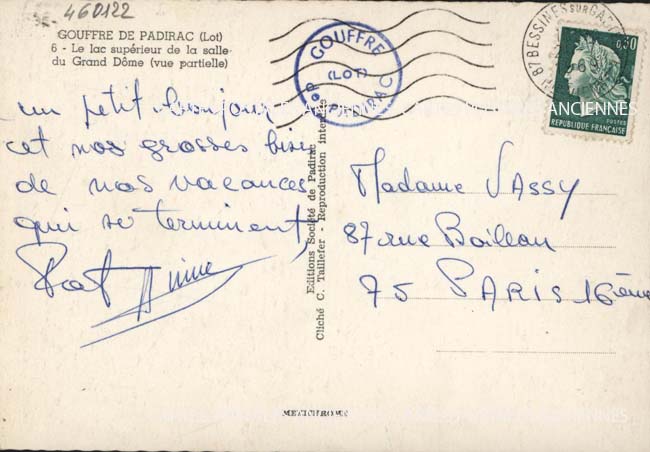 460122
GOUFFRE DE PADIRAC (Lot)
6 - Le lac supérieur de la salle
du Grand Dôme (vue partielle)
un petit bonjour
et nos grosses bises
de nos vacances
qui se terminent,
Pat Anne
Editions Société de Padirac
Cliché C. Taillefer - Reproduction interdite
GOUFFRE
(LOT)
de PADIRAC
87 BESSINES SUR GARTEMPE
0,30
POSTES
REPUBLIQUE FRANÇAISE
ANCIENNES
Madame VASSY
87 rue Boileau
75 PARIS 16ème
METICHROME